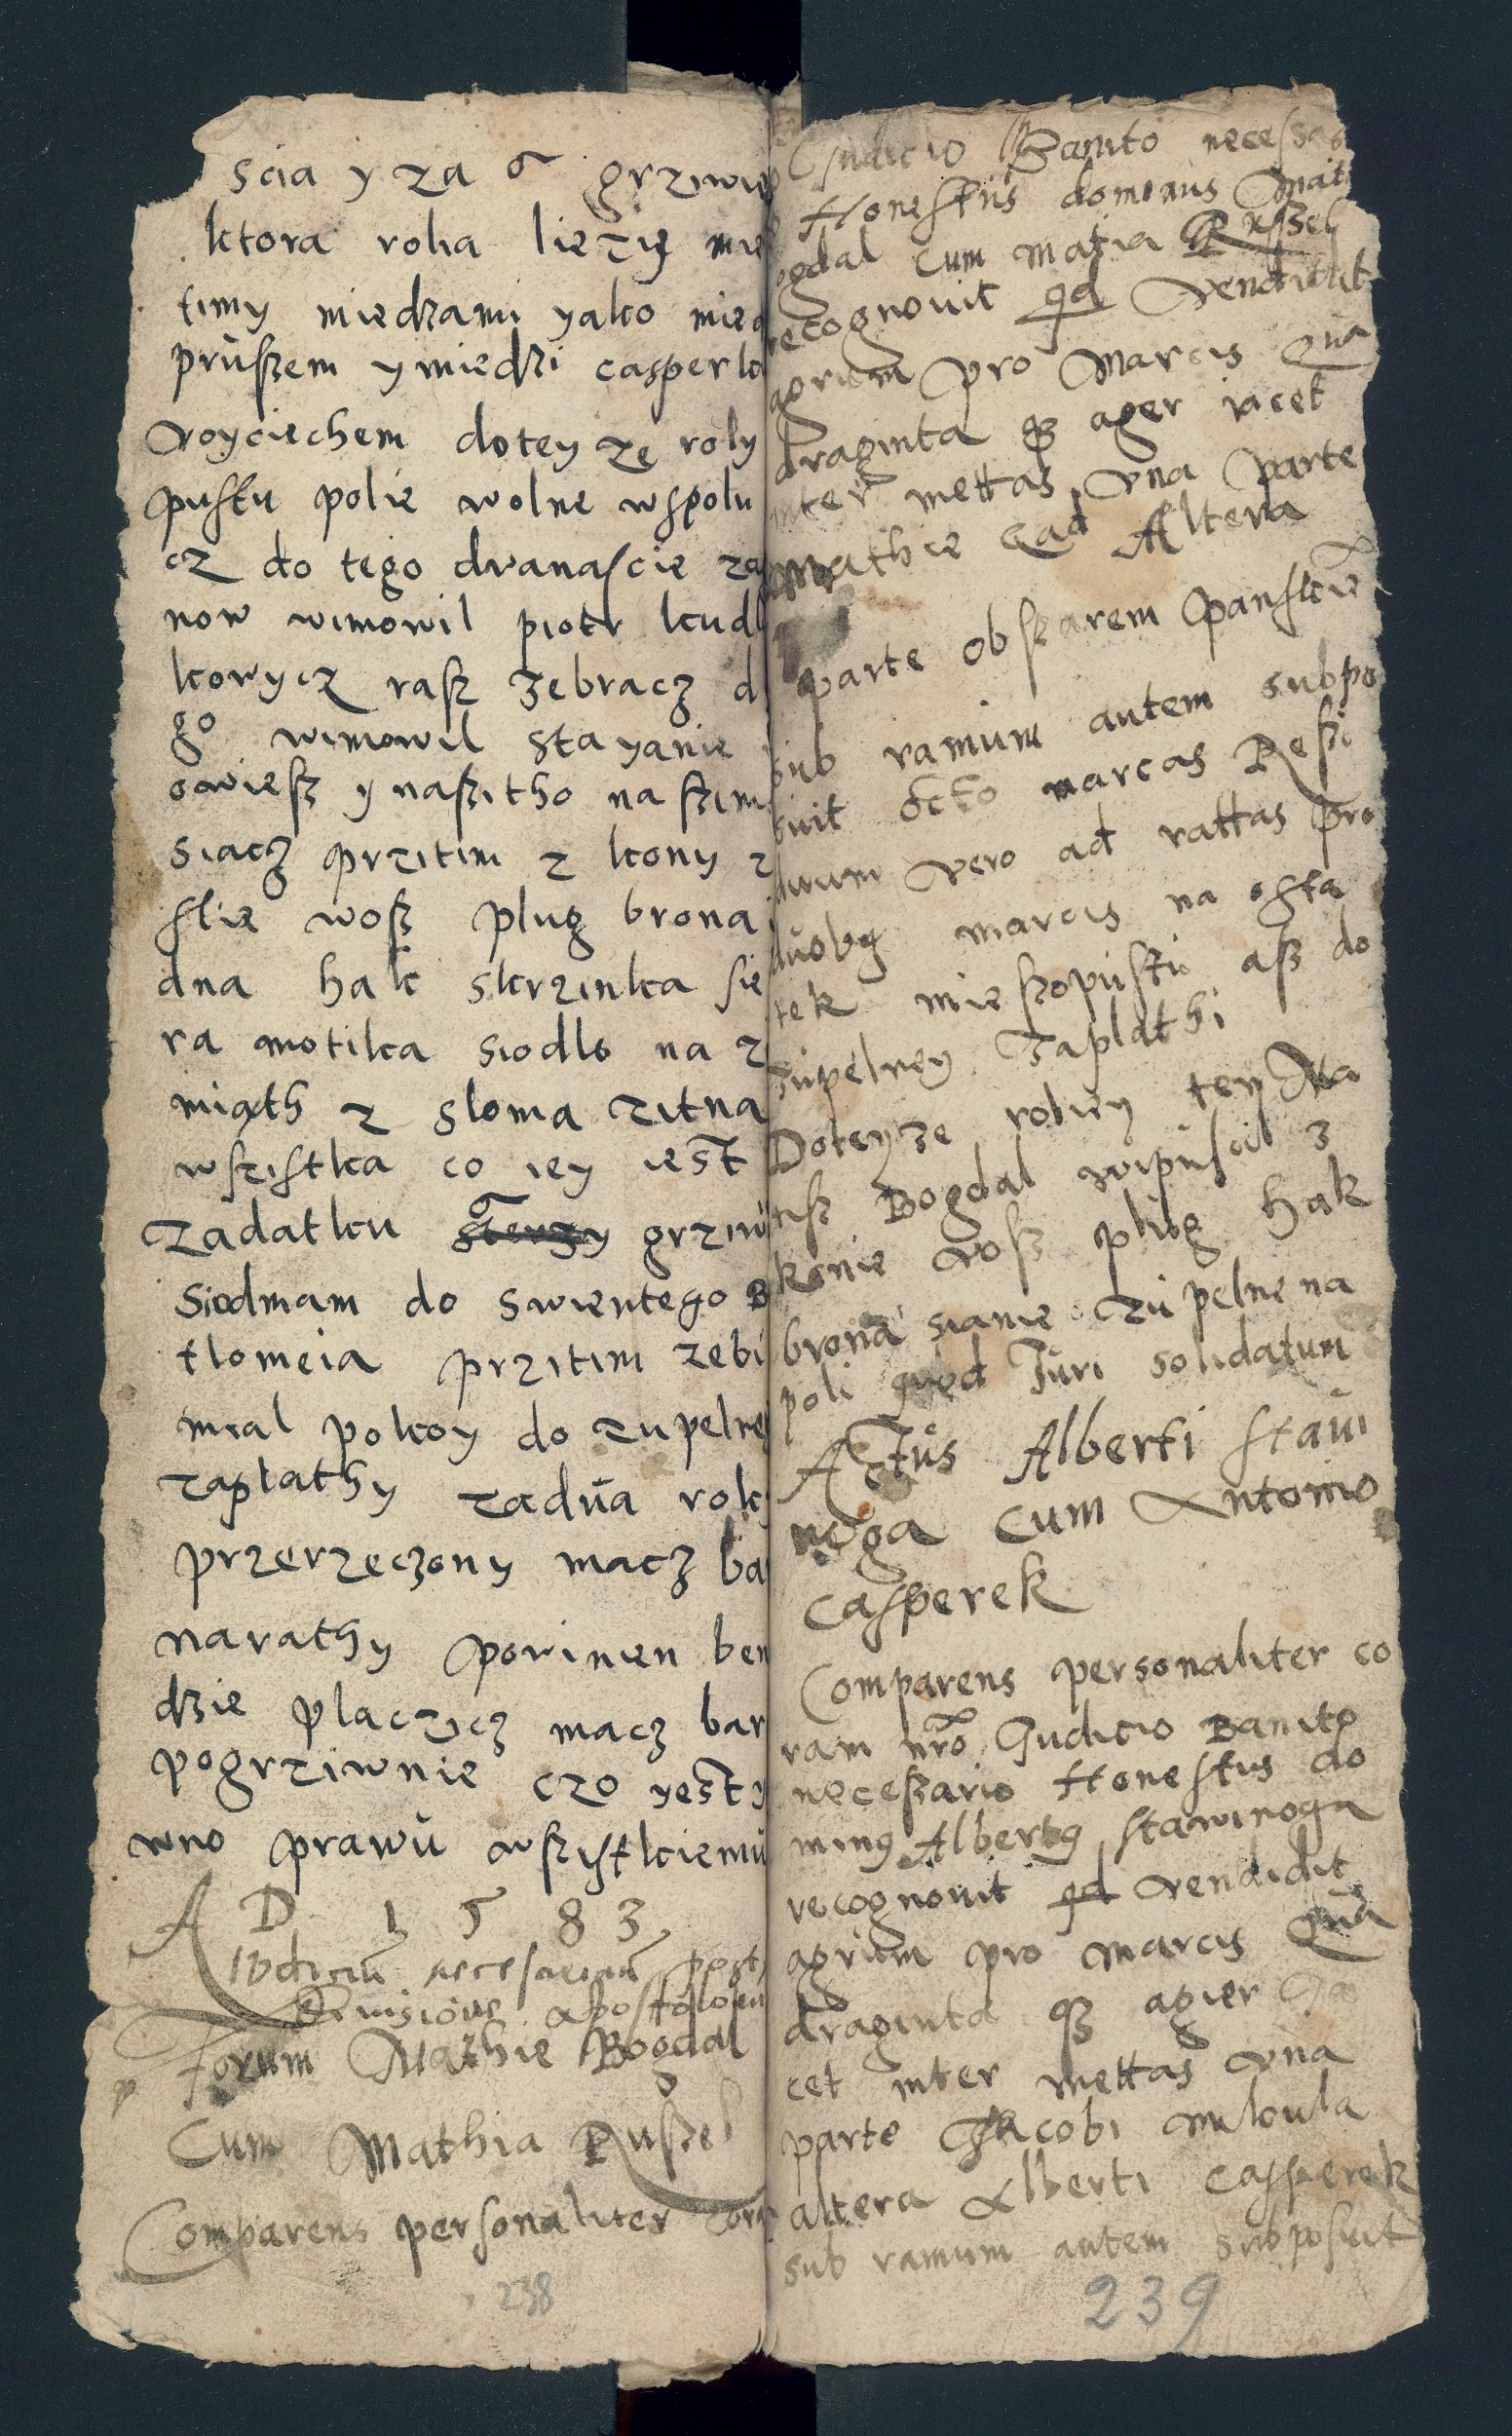 scia y za 6 grziwie
ktora rolia liezię mie
timy miedzami yako mied
prüszem y miedzi casperko
voyciechem dotey ze roly
pustu polie wolne wspolu
cz do tego dwanascie za
now wimowil piotr kudl
kowycz rasz zebracz d
go wimowil stayanie
owiesz y naszitho na szim
siacz przitim 2 kony z
slie wosz plug brona
dna hak skrzinka sie
ra motika siodlo na z
miąth z sloma zitna
wszistka co iey iest
zadatku 6 grziw
Siodmam do swientego B
tlomeia przitim zebi
mial pokoy do zupelne
zaplathy zadüa roky
przerzeczony macz ba
narathy povinien ben
dzie placzicz macz bar
pogrziwnie czo yest
wno prawü wszistkiemü
A D 1583
Iudiciū necesariū post
Diuisioīs Apostoloru
Forum Mathie Bogdal
Cum Mathia Ruszel
Comparens personaliter cora
238
Iudicio Banito necessar
Honestus dominus Mat
ogdal cum Matia Ruszel
recognouit qd vendidit
agrum pro Marcis Qua
draginta qz ager iacet
inter mettas vna parte
Mathie Altera
parte obszarem panskie
sub ramum autem subpo
suit octo marcas Reszi
duum vero ad rattas pro
duobq marcis na osta
tek mieszopustu asz do
zupelney zaplathi
Doteyze roliey tey Ma
usz Bogdal wipuscil 3
konie wosz plug hak
brona sianie czupelne na
poli qued Iuri solidatum
Actus Alberti staui
noga cum Antonio
Casperek
Comparens personaliter co
ram nr̄o Iudicio Banito
necessario Honestus do
minq Albertq stawinoga
recognouit qd vendidit
agrum pro marcis Qua
draginta qz agier Ia
cet inter mettas vna
parte Iacobi mikula
altera Alberti Casperek
sub ramum autem subposuit
239